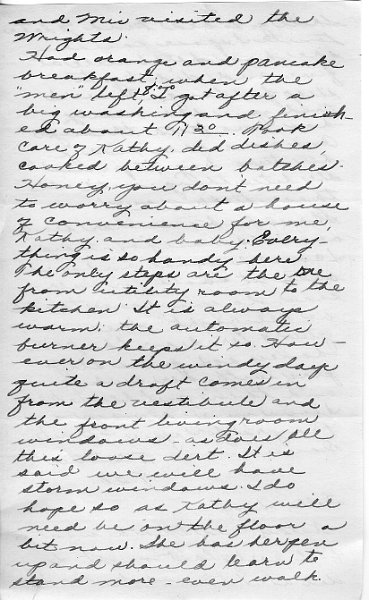 and Mic visited the
Wrights.
Had orange and pancake
breakfast, when the
"men" left, I got after a
big washing and finish-
ed about 11:30. Took
care of Kathy, did dishes,
cooked between batches.
Honey, you dont need
to worry about a house
of convenience for me,
Kathy, and baby. Every-
thing is so handy here.
The only steps are the
from utility room to the
kitchen. It is always
warm; the automatic
burner keeps it so. How-
ever on the windy days
quite a draft comes in
from the vestibule and
the front livingroom
windows - as does all
this loose dirt. It is
said we will have
storm windows. I do
hope so as Kathy will
need be on the floor a
bit now. She has her pen
up and should learn to
stand more - even walk